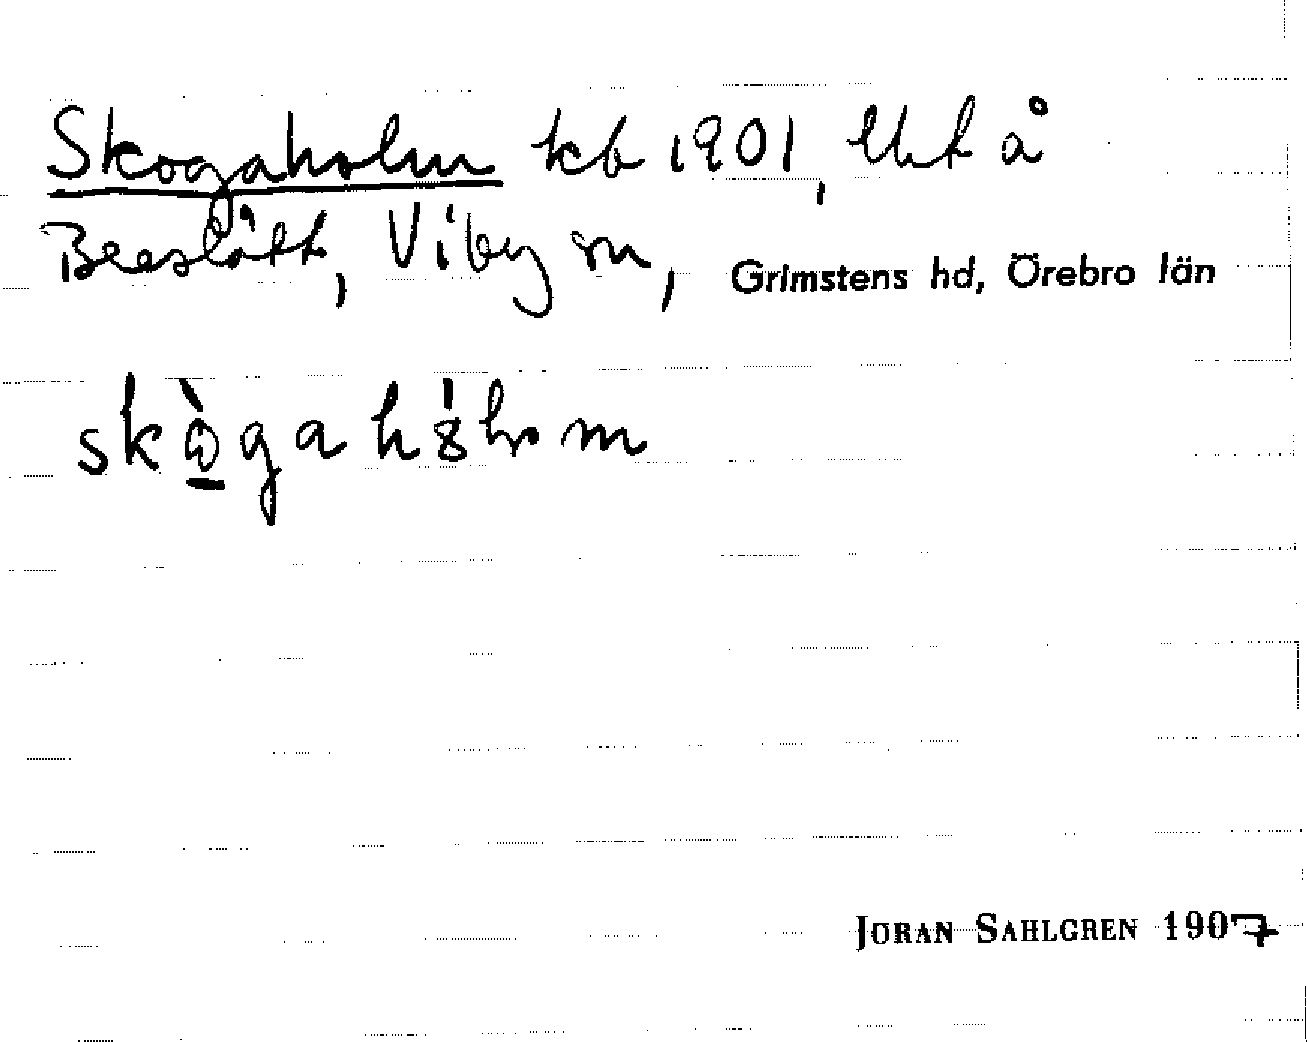 Skogaholm kb 1901, Uht å
Breslätt, Viby sn, Grimstens hd, Örebro län
skògahólm
JÖRAN SAHLGREN 1907